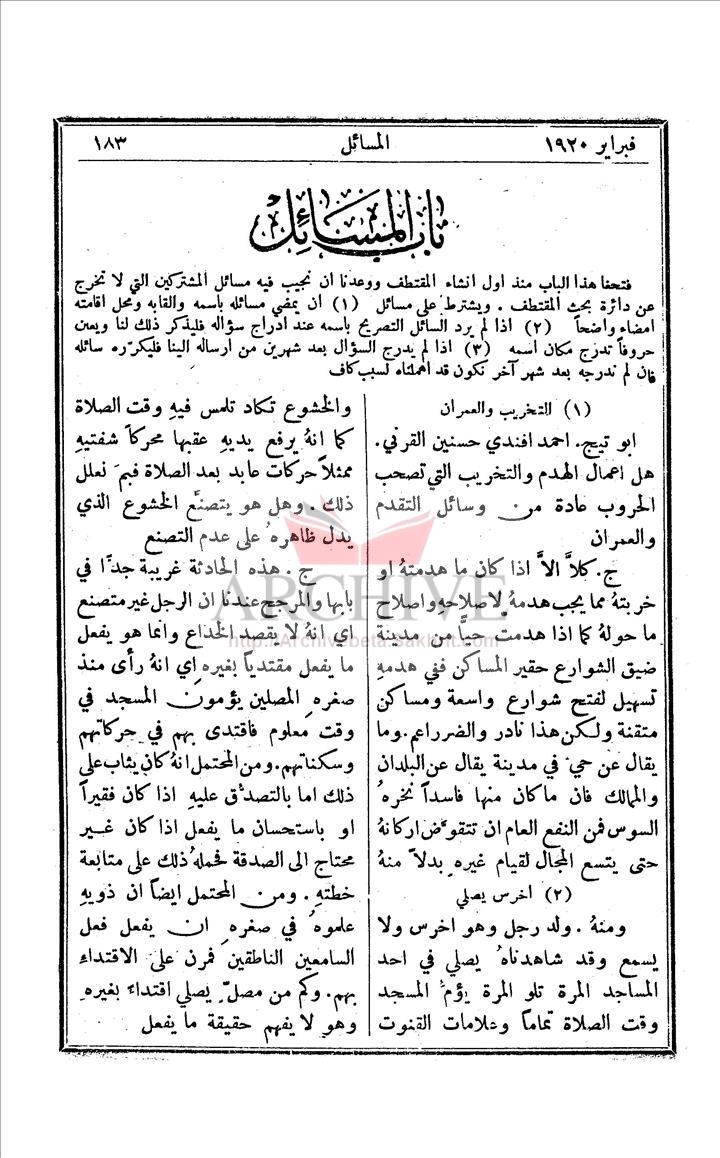 فبراير ١٩٢٠ المسائل ١٨٣
باب المسائل
فتحنا هذا الباب منذ اول انشاء المقتطف ووعدنا ان نجيب فيه مسائل المشتركين التي لا تخرج
عن دائرة بحث المقتطف . ويشترط على مسائل (١) ان يمضي مسائله باسمه والقابه ومحل اقامته
امضاء واضحاً (٢) اذا لم يرد السائل التصريح باسمه عند ادراج سؤاله فليذكر ذلك لنا ويعين
حروفاً تدرج مكان اسمه (٣) اذا لم يدرج السؤال بعد شهرين من ارساله الينا فليكرّره سائله
فان لم ندرجه بعد شهر آخر نكون قد اهملناه لسبب كاف
(١) التخريب والعمران
ابو تيج. احمد افندي حسنين القرني.
هل اعمال الهدم والتخريب التي تصحب
الحروب عادة من وسائل التقدم
والعمران
ج. كلاَّ الاَّ اذا كان ما هدمتهُ او
خربتهُ مما يجب هدمهُ لاصلاحهِ واصلاح
ما حولهُ كما اذا هدمت حيًّا من مدينة
ضيق الشوارع حقير المساكن ففي هدمهِ
تسهيل لفتح شوارع واسعة ومساكن
متقنة ولكن هذا نادر والضرر اعم. وما
يقال عن حيّ في مدينة يقال عن البلدان
والممالك فان ماكان منها فاسداً نخرهُ
السوس فمن النفع العام ان تتقوَّض اركانهُ
حتى يتسع المجال لقيام غيرهِ بدلاً منهُ
(٢) اخرس يصلي
ومنهُ . ولد رجل وهو اخرس ولا
يسمع وقد شاهدناهُ يصلي في احد
المساجد المرة تلو المرة يؤمُّ المسجد
وقت الصلاة تماماً وعلامات القنوت
والخشوع تكاد تلمس فيهِ وقت الصلاة
كما انهُ يرفع يديهِ عقبها محركاً شفتيهِ
ممثلاً حركات عابد بعد الصلاة فبمَ نعلل
ذلك . وهل هو يتصنَّع الخشوع الذي
يدل ظاهرهُ على عدم التصنع
ج . هذه الحادثة غريبة جدًّا في
بابها والمرجح عندنا ان الرجل غير متصنع
اي انهُ لا يقصد الخداع وانما هو يفعل
ما يفعل مقتدياً بغيرهِ اي انهُ رأى منذ
صغرهِ المصلين يؤمون المسجد في
وقت معلوم فاقتدى بهم في حركاتهم
وسكناتهم. ومن المحتمل انهُ كان يثاب على
ذلك اما بالتصدُّق عليهِ اذا كان فقيراً
او باستحسان ما يفعل اذا كان غير
محتاج الى الصدقة فحملهُ ذلك على متابعة
خطتهِ . ومن المحتمل ايضاً ان ذويهِ
علموهُ في صغرهِ ان يفعل فعل
السامعين الناطقين فمرن على الاقتداء
بهم. وكم من مصلٍّ يصلي اقتداءً بغيرهِ
وهو لا يفهم حقيقة ما يفعل
ARCHIVE
http://Archivebeta.Sakhrit.com